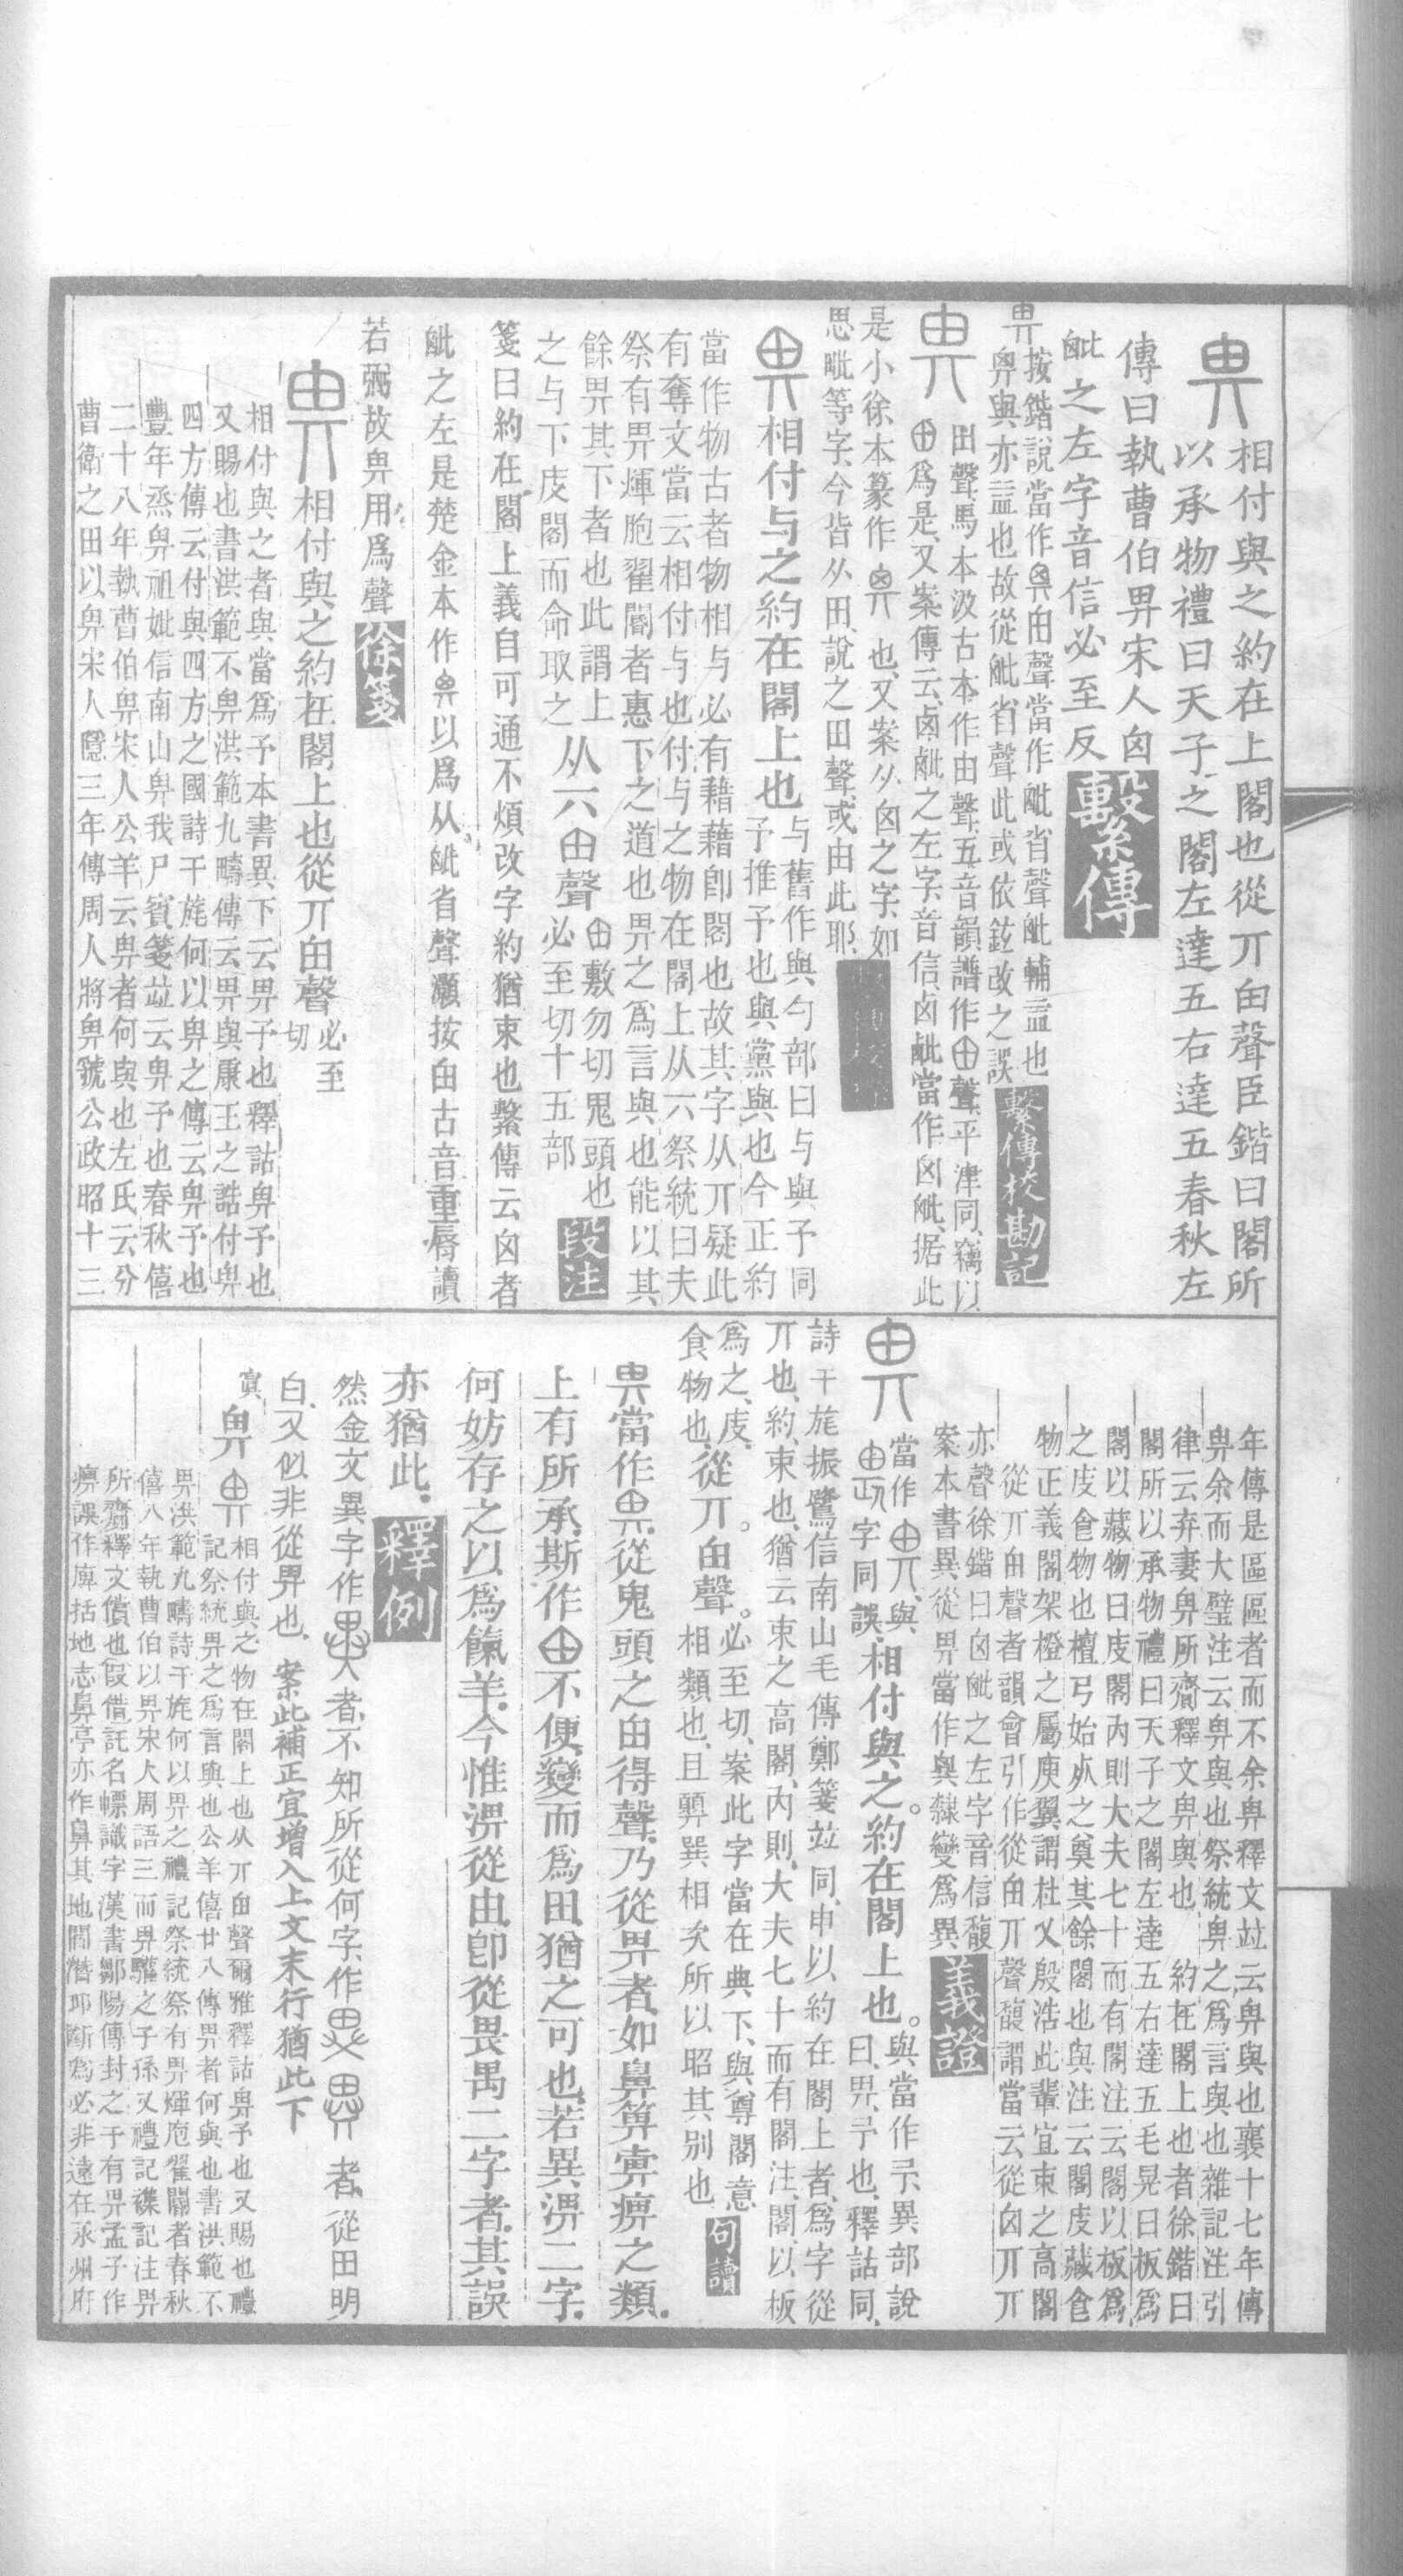 畀
相付與之約在上閣也從丌甶聲臣鍇曰閣所
以承物禮曰天子之閣左達五右達五春秋左
傳曰執曹伯畀宋人囟
毗之左字音信必至反
繫傳
畀
按鍇說當作𢌿甶聲當作毗省聲毗輔
也故從毗省聲此或依鉉改之誤
繫傳校勘記
田聲馬本汲古本作由聲五音韻譜作甶聲平津同竊以
甶爲是又案傳云囟毗之左字音信囟毗當作囟毗据此
是小徐本篆作𢌿也又案从囟之字如
思毗等字今皆从田說之田聲或由此耶
畀相付与之約在閣上也
与舊作與勺部曰与與予同
予推予也與黨與也今正約
當作物古者物相与必有藉藉卽閣也故其字从丌疑此
有奪文當云相付与也付与之物在閣上从六祭統曰夫
祭有畀煇胞翟閽者惠下之道也畀之爲言與也能以其
餘畀其下者也此謂上
之与下庋閣而命取之
从六甶聲
甶敷勿切鬼頭也
必至切十五部
段注
箋曰約在閣上義自可通不煩改字約猶束也繫傳云囟者
毗之左是楚金本作𢌿以爲从毗省聲灝按甶古音重脣讀
若弼故畀用爲聲
徐箋
相付與之約在閣上也從丌甶聲
必至
切
相付與之者與當爲予本書異下云畀予也釋詁畀予也
又賜也書洪範不畀洪範九疇傳云畀與康王之誥付畀
四方傳云付與四方之國詩干旄何以畀之傳云畀予也
豐年烝畀祖妣信南山畀我尸賓箋竝云畀予也春秋僖
二十八年執曹伯畀宋人公羊云畀者何與也左氏云分
曹衛之田以畀宋人隱三年傳周人將畀虢公政昭十三
年傳是區區者而不余畀釋文竝云畀與也襄十七年傳
畀余而大璧注云畀與也祭統畀之爲言與也雜記注引
律云弃妻畀所齎釋文畀與也 約在閣上也者徐鍇曰
閣所以承物禮曰天子之閣左達五右達五毛晃曰板爲
閣以藏物曰庋閣內則大夫七十而有閣注云閣以板爲
之庋食物也檀弓始死之奠其餘閣也與注云閣庋藏食
物正義閣架橙之屬庾翼謂杜乂殷浩此輩宜束之高閣
從丌甶聲者韻會引作從甶丌聲馥謂當云從囟丌丌
亦聲徐鍇曰囟毗之左字音信馥
案本書異從畀當作𢌿隸變爲異
義證
當作𢌿與
字同誤
相付與之約在閣上也
與當作予異部說
曰畀予也釋詁同
詩干旄振鷺信南山毛傳鄭箋竝同申以約在閣上者爲字從
丌也約束也猶云束之高閣內則大夫七十而有閣注閣以板
爲之庋
食物也
從丌甶聲
必至切案此字當在典下與尊閣意
相類也且顨巽相次所以昭其別也
句讀
畀當作𢌿從鬼頭之甶得聲乃從畀者如鼻箅㢰痹之類
上有所承斯作甶不便變而爲田猶之可也若異淠二字
何妨存之以爲餼羊今惟淠從由卽從畏禺二字者其誤
亦猶此
釋例
然金文異字作 者不知所從何字作 者從田明
白又似非從畀也 案此補正宜增入上文末行猶此下
畀
相付與之物在閣上也从丌甶聲爾雅釋詁畀予也又賜也禮
記祭統畀之爲言與也公羊僖廿八傳畀者何與也書洪範不
畀洪範九疇詩干旄何以畀之禮記祭統祭有畀煇庖翟閽者春秋
僖八年執曹伯以畀宋人周語三而畀驩之子孫又禮記襍記注畀
所齎釋文償也叚借託名幖識字漢書鄒陽傳封之于有畀孟子作
痹誤作庳括地志鼻亭亦作鼻其地閻潛邱斷爲必非遠在永州府